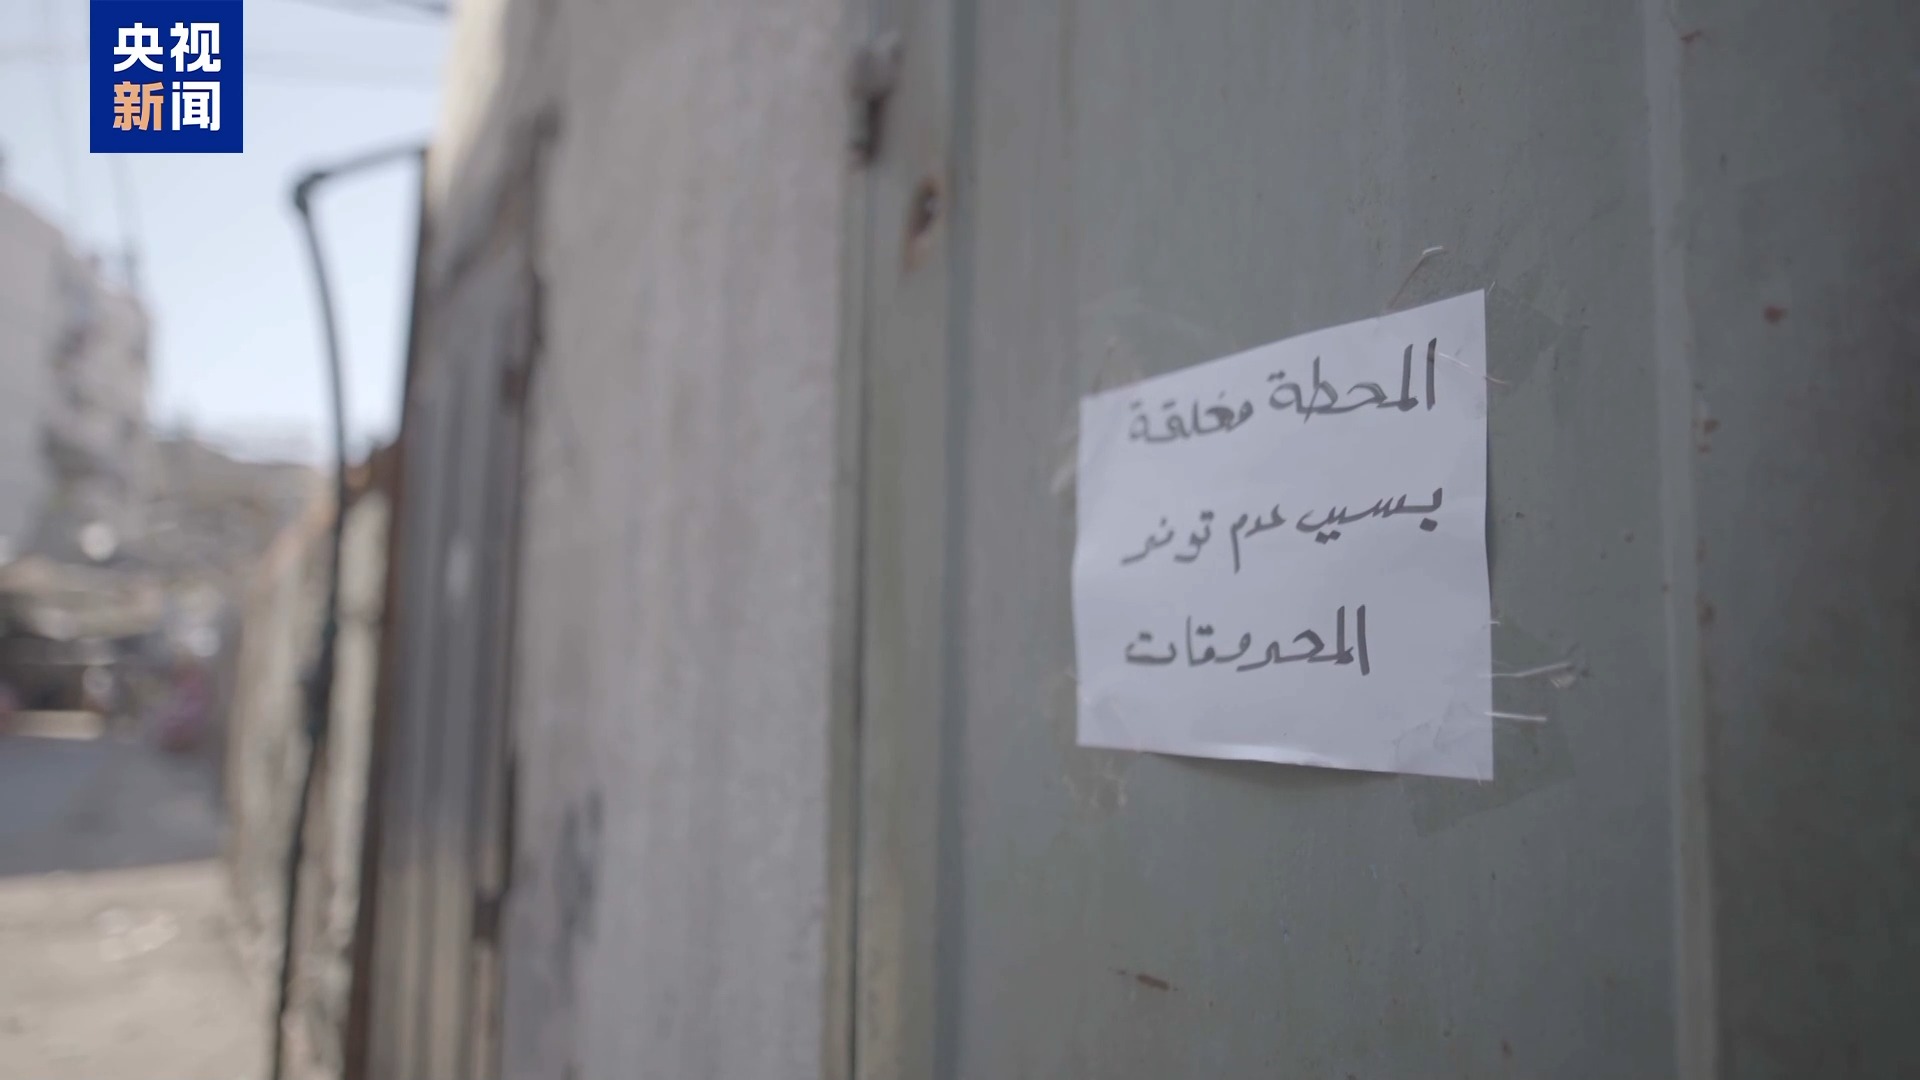 央视
新闻
المحطة مغلقة
بسبب عدم توفر
المحروقات